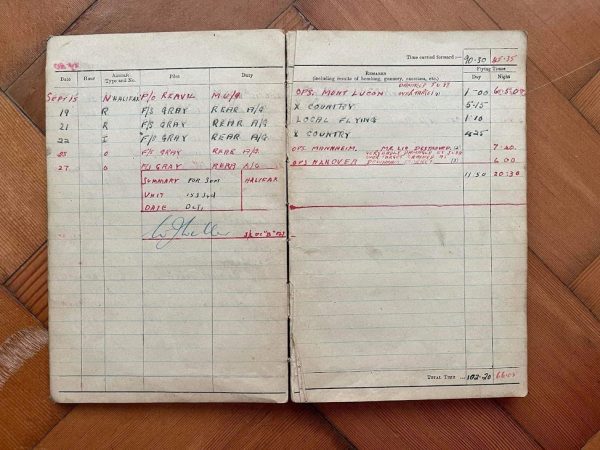 Time carried forward:— 90.30 45.35
Date Hour Aircraft Type and No. Pilot Duty
Remarks (including results of bombing, gunnery, exercises, etc.) Flying Times Day Night
Sept 15 N HALIFAX F/O REAVIL M.U/G.
OPS. MONT LUCON 1.00
19 R F/S GRAY REAR A/G
X COUNTRY 5.15
21 R F/S GRAY REAR A/G
LOCAL FLYING 1.10
22 I GRAY REAR A/G.
X COUNTRY 4.25
GRAY REAR A/G.
OPS. MANNHEIM. DESTROYED 7.40
27 O GRAY REAR A/G
OPS HANOVER 6.00
SUMMARY FOR SEPT HALIFAX
11.50 20.30
UNIT
DATE OCT 1
TOTAL TIME ... 102.20 66.05